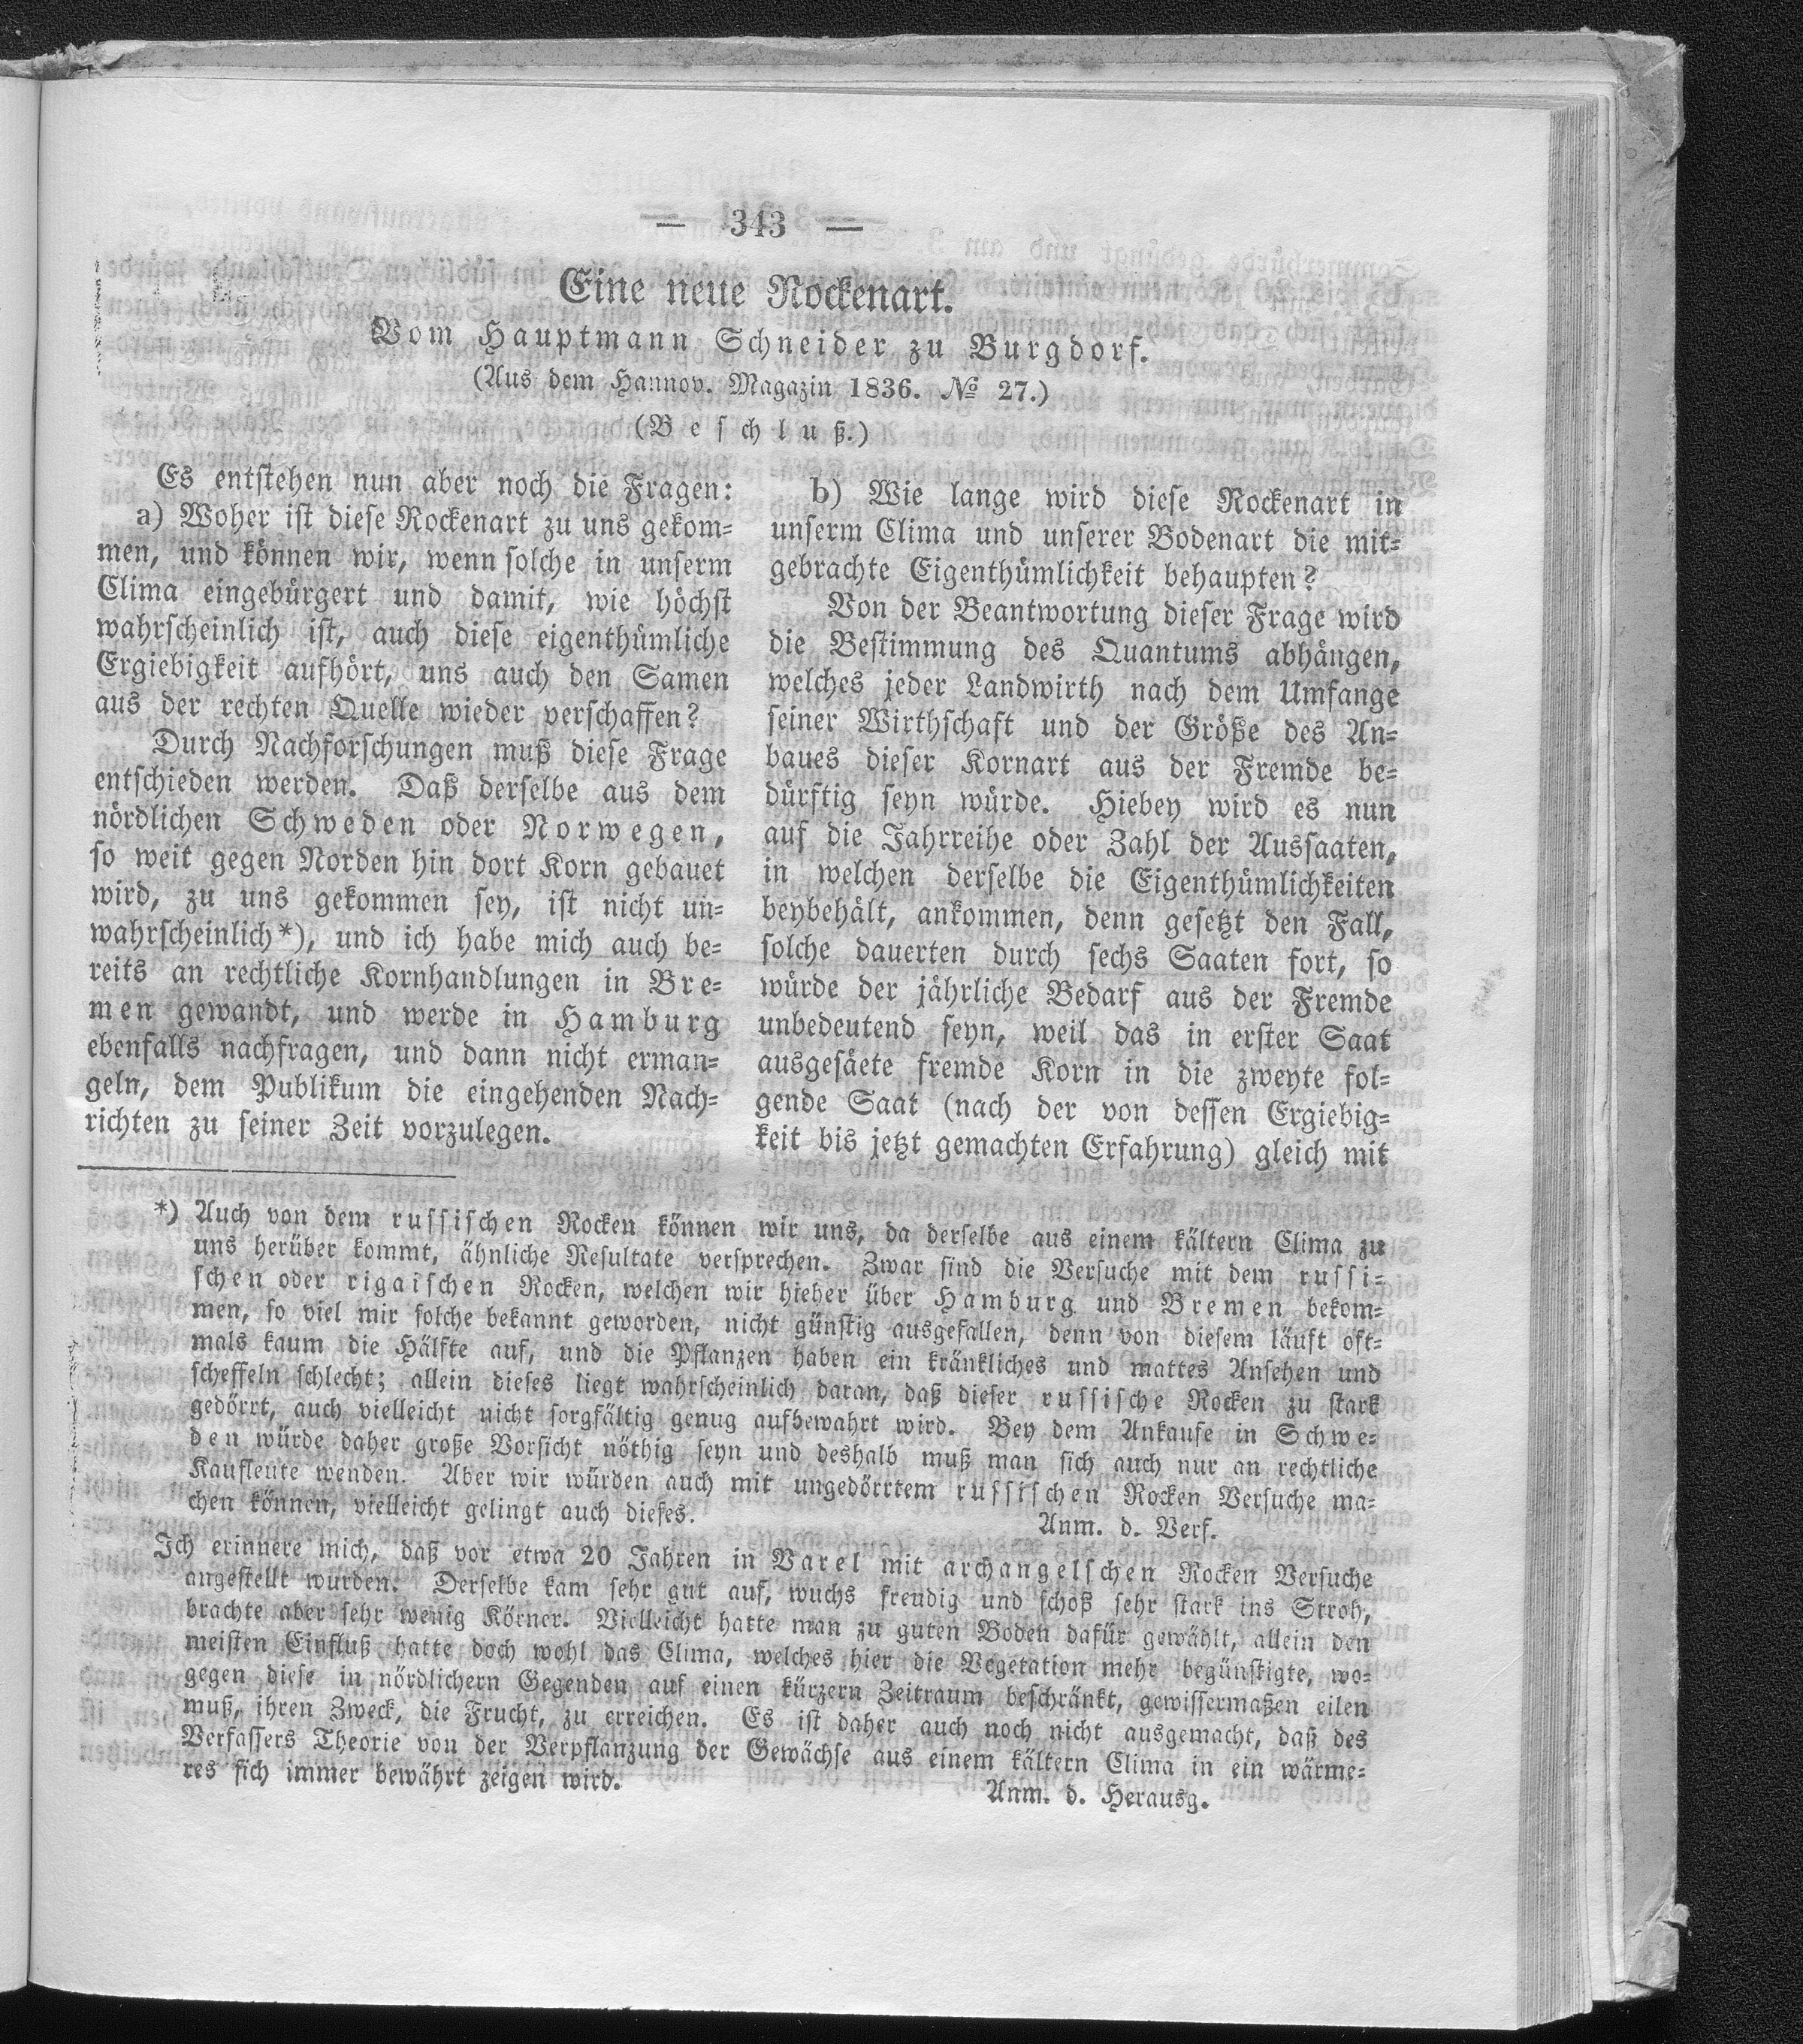 — 343 —
Eine neue Rockenart.
Vom Hauptmann Schneider zu Burgdorf.
(Aus dem Hannov. Magazin 1836. № 27.)
(Beschluß.)
Es entstehen nun aber noch die Fragen:
a) Woher ist diese Rockenart zu uns gekom-
men, und können wir, wenn solche in unserm
Clima eingebürgert und damit, wie höchst
wahrscheinlich ist, auch diese eigenthümliche
Ergiebigkeit aufhört, uns auch den Samen
aus der rechten Quelle wieder verschaffen?
Durch Nachforschungen muß diese Frage
entschieden werden. Daß derselbe aus dem
nördlichen Schweden oder Norwegen,
so weit gegen Norden hin dort Korn gebauet
wird, zu uns gekommen sey, ist nicht un-
wahrscheinlich*), und ich habe mich auch be-
reits an rechtliche Kornhandlungen in Bre-
men gewandt, und werde in Hamburg
ebenfalls nachfragen, und dann nicht erman-
geln, dem Publikum die eingehenden Nach-
richten zu seiner Zeit vorzulegen.
b) Wie lange wird diese Rockenart in
unserm Clima und unserer Bodenart die mit-
gebrachte Eigenthümlichkeit behaupten?
Von der Beantwortung dieser Frage wird
die Bestimmung des Quantums abhängen,
welches jeder Landwirth nach dem Umfange
seiner Wirthschaft und der Größe des An-
baues dieser Kornart aus der Fremde be-
dürftig seyn würde. Hiebey wird es nun
auf die Jahrreihe oder Zahl der Aussaaten,
in welchen derselbe die Eigenthümlichkeiten
beybehält, ankommen, denn gesetzt den Fall,
solche dauerten durch sechs Saaten fort, so
würde der jährliche Bedarf aus der Fremde
unbedeutend seyn, weil das in erster Saat
ausgesäete fremde Korn in die zweyte fol-
gende Saat (nach der von dessen Ergiebig-
keit bis jetzt gemachten Erfahrung) gleich mit
*) Auch von dem russischen Rocken können wir uns, da derselbe aus einem kältern Clima zu
uns herüber kommt, ähnliche Resultate versprechen. Zwar sind die Versuche mit dem russi-
schen oder rigaischen Rocken, welchen wir hieher über Hamburg und Bremen bekom-
men, so viel mir solche bekannt geworden, nicht günstig ausgefallen, denn von diesem läuft oft-
mals kaum die Hälfte auf, und die Pflanzen haben ein kränkliches und mattes Ansehen und
scheffeln schlecht; allein dieses liegt wahrscheinlich daran, daß dieser russische Rocken zu stark
gedörrt, auch vielleicht nicht sorgfältig genug aufbewahrt wird. Bey dem Ankaufe in Schwe-
den würde daher große Vorsicht nöthig seyn und deshalb muß man sich auch nur an rechtliche
Kaufleute wenden. Aber wir würden auch mit ungedörrtem russischen Rocken Versuche ma-
chen können, vielleicht gelingt auch dieses.
Anm. d. Verf.
Ich erinnere mich, daß vor etwa 20 Jahren in Varel mit archangelschen Rocken Versuche
angestellt wurden. Derselbe kam sehr gut auf, wuchs freudig und schoß sehr stark ins Stroh,
brachte aber sehr wenig Körner. Vielleicht hatte man zu guten Boden dafür gewählt, allein den
meisten Einfluß hatte doch wohl das Clima, welches hier die Vegetation mehr begünstigte, wo-
gegen diese in nördlichern Gegenden auf einen kürzern Zeitraum beschränkt, gewissermaßen eilen
muß, ihren Zweck, die Frucht, zu erreichen. Es ist daher auch noch nicht ausgemacht, daß des
Verfassers Theorie von der Verpflanzung der Gewächse aus einem kältern Clima in ein wärme-
res sich immer bewährt zeigen wird.
Anm. d. Herausg.